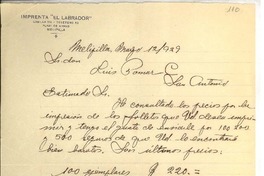 IMPRENTA "EL LABRADOR"
MELIPILLA
Melipilla, Mayo 12/929
Sr. don
Luis Ponce
San Antonio
Estimado Sr.
He consultado los precios por la
impresión de los folletos que Ud desea impri-
mir y tengo el gusto de enviarle por 100, 200
y 500 ejemplares que Ud. los encontrará
bien baratos. Son últimos precios.
100 ejemplares $ 220.=